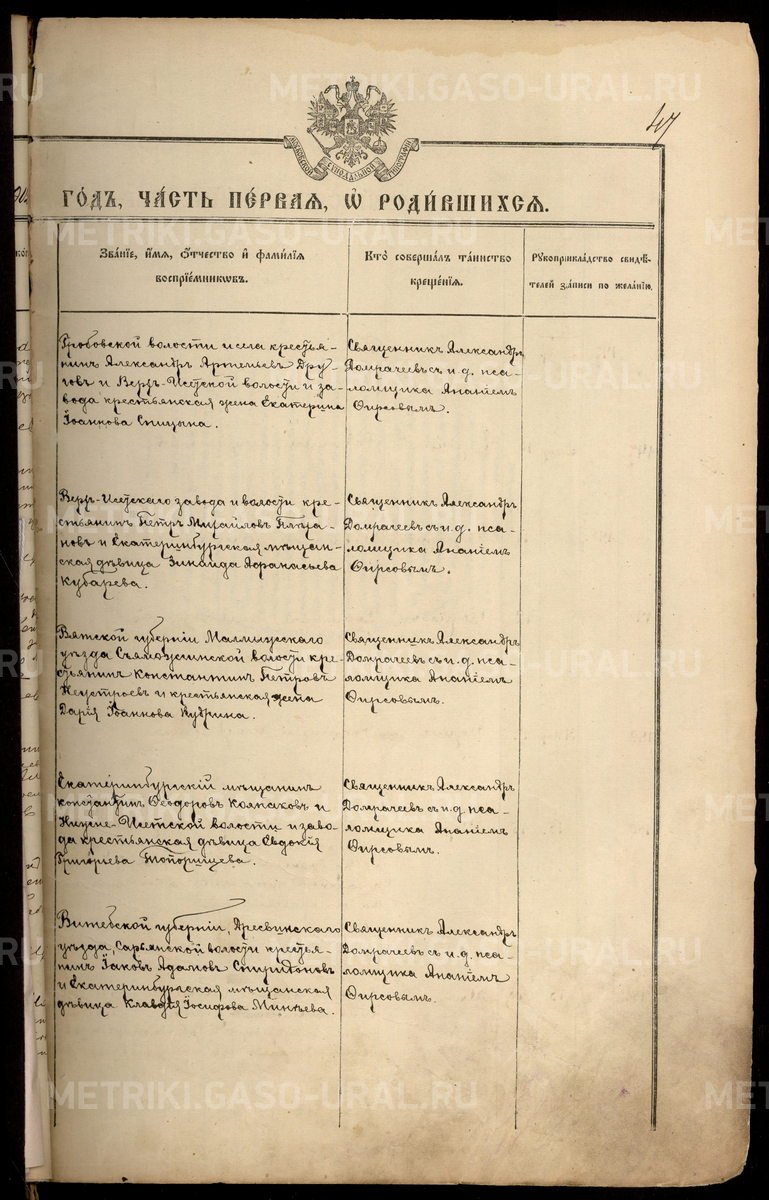 METRIKI.GASO-URAL.RU
47
МОСКОВСКОЙ СѴНОДАЛЬНОЙ ТИПОГРАФІИ
ГО́ДЪ, ЧА́СТЬ ПЕ́РВАЯ, Ѡ҆ РОДИ́ВШИХСЯ.
METRIKI.GASO-URAL.RU
Зва́нїе, и҆́мя, ѻ҆́тчество и҆ фами́лїя
воспрїе́мникѡвъ.
Кто̀ соверша́лъ та́инство
креще́нїя.
Рꙋкоприкла́дство свидѣ́-
телей за́писи по жела́нїю.
Гробовской волости и села крестья-
нинъ Александръ Артемьевъ Дру-
говъ и Верхъ-Исетской волости и за-
вода крестьянская жена Екатерина
Іоаннова Спицына.
Священникъ Александръ
Домрачеевъ съ и. д. пса-
ломщика Ананіемъ
Фирсовымъ.
Верхъ-Исетскаго завода и волости кре-
стьянинъ Петръ Михайловъ
новъ и Екатеринбургская мѣщан-
ская дѣвица Зинаида Афанасьева
Кубарева.
Священникъ Александръ
Домрачеевъ съ и. д. пса-
ломщика Ананіемъ
Фирсовымъ.
Вятской губерніи Малмыжскаго
уѣзда волости кре-
стьянинъ Константинъ Петровъ
Неустроевъ и крестьянская жена
Дарія Іоаннова Кудрина.
Священникъ Александръ
Домрачеевъ съ и. д. пса-
ломщика Ананіемъ
Фирсовымъ.
Екатеринбургскій мѣщанинъ
Константинъ Ѳеодоровъ Колпаковъ и
Нижне-Исетской волости и заво-
да крестьянская дѣвица Евдокія
Григорьева Топорищева.
Священникъ Александръ
Домрачеевъ съ и. д. пса-
ломщика Ананіемъ
Фирсовымъ.
Витебской губерніи, Дресвинскаго
уѣзда, Сарьянской волости крестья-
нинъ Іаковъ Адамовъ Спиридоновъ
и Екатеринбургская мѣщанская
дѣвица Клавдія Іосифова Минѣева.
Священникъ Александръ
Домрачеевъ съ и. д. пса-
ломщика Ананіемъ
Фирсовымъ.
METRIKI.GASO-URAL.RU